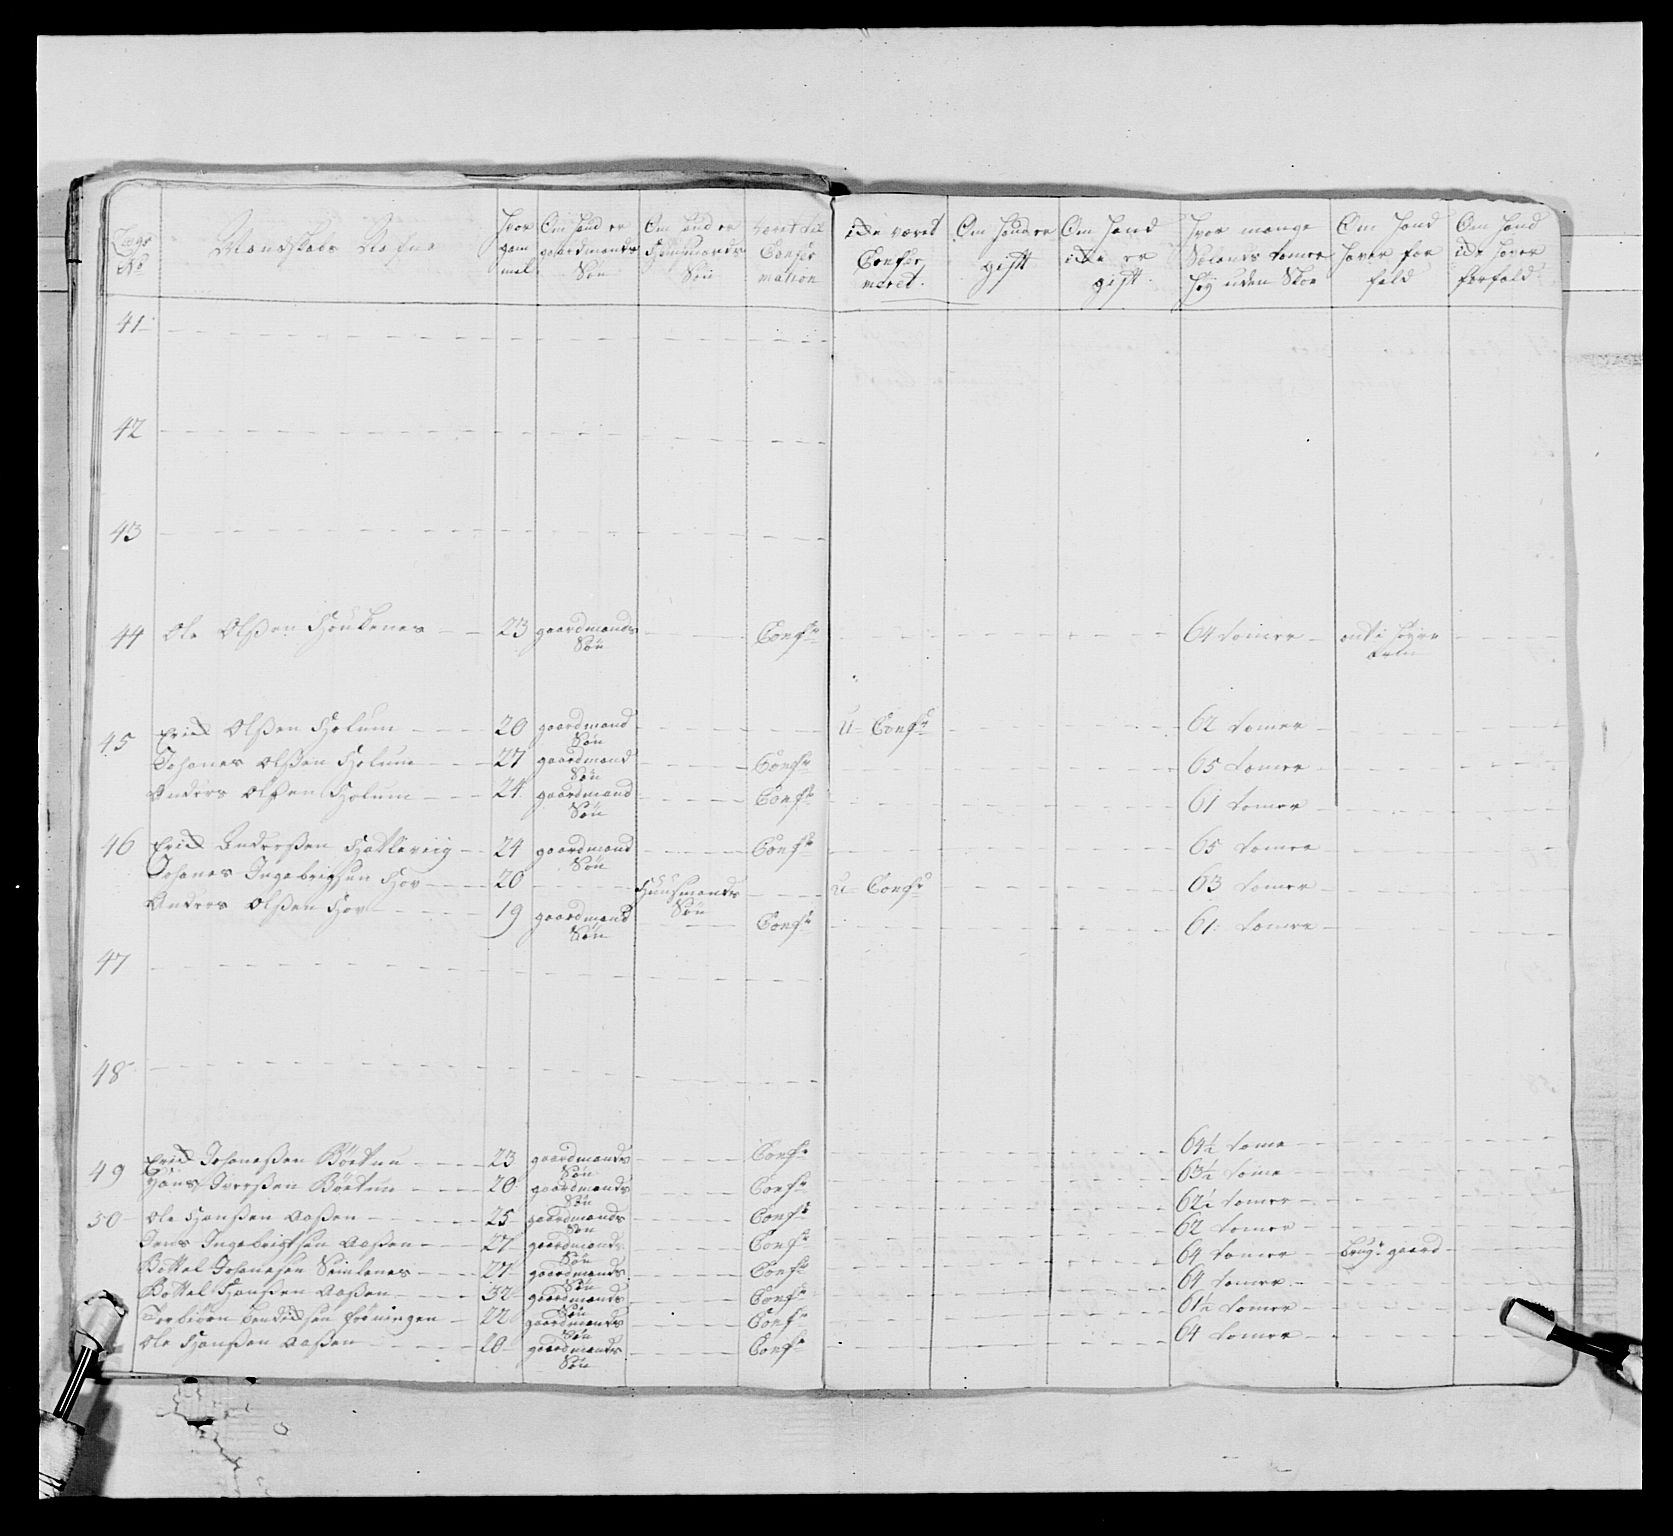 Lægs No | Mandskabs Nafne | hvor gam mel | Om hand er gaardmands Søn | Om hand er Huusmands Søn | været til Confir mation | icke været Confir meret. | Om hand er gift | Om hand icke er gift | hvor mange Sølands tomer høy uden Skoe | Om hand haver for fald | Om hand icke haver forfald
41
42
43
44 Ole Olßen Houkenes 23 gaardmands Søn Confr 64 tomer ont i høyre
45 Erick Olßen Holum 20 gaardmand Søn U- Confr 62 tomer
Johanes Olßen Holum 27 gaardmand Søn Confr 65 tomer
Anders Olßen Holum 24 gaardmand Søn Confr 61 tomer
46 Erick Anderßen Hatleviig 24 gaardmand Søn Confr 65 tomer
Johanes Ingebrigtsen Hov 20 Huusmands Søn u- Confr 63 tomer
Anders Olßen Hov 19 gaardmand Søn Confr 61 tomer
47
48
49 Erick Johaneßen Børtun 23 gaardmands Søn Confr 64½ tome
Hans Iverßen Børtun 20 gaardmands Søn Confr 63½ tome
50 Ole Hanßen Aaßen 25 gaardmands Søn Confr 62½ tomer
Jens Ingebrigtsen Aaßen 27 gaardmands Søn Confr 62 tomer
Bottel Johanesen Seimlenes 27 gaardmands Søn Confr 64 tomer brugr gaard
Bottel Hanßen Aaßen 32 gaardmands Søn Confr 64 tomer
Torbiørn Bendicksen 22 gaardmands Søn Confr 61½ tomer
Ole Hanßen Aaßen 20 gaardmands Søn Confr 64 tomer